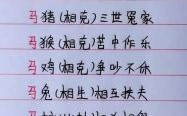 马猪(相克)三世冤家
马猴(相克)苦中作乐
马鸡(相克)争吵不休
马兔(相生)相互扶夫